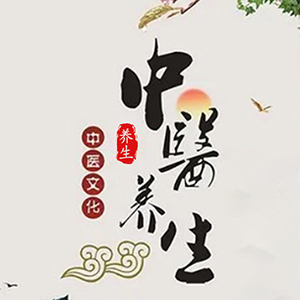 中醫养生
养生
中医文化